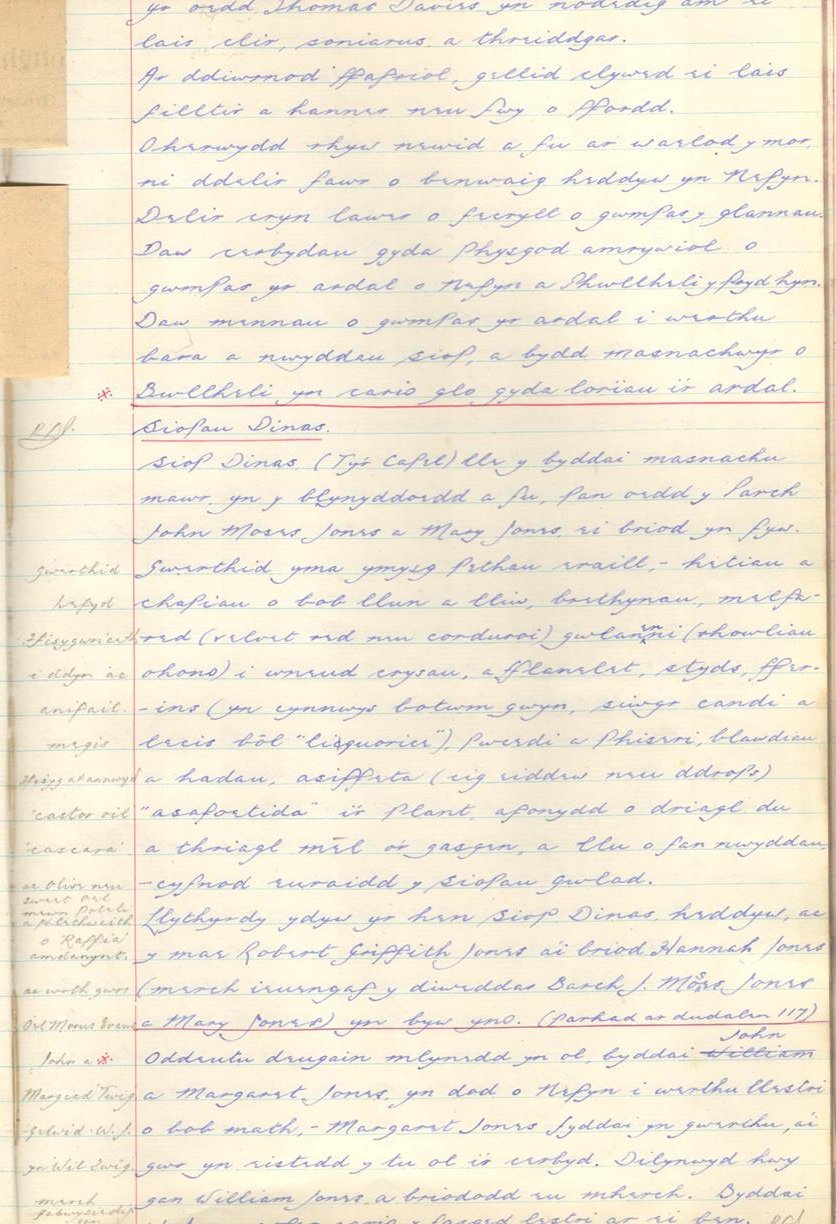 yr oedd Thomas Davies yn nodedig am ei
lais clir, soniarus, a threiddgar.
Ar ddiwrnod ffafriol, gellid clywed ei lais
filltir a hanner neu fwy o ffordd.
Oherwydd rhyw newid a fu ar waelod y mor,
ni ddelir fawr o benwaig heddyw yn Nefyn.
Delir cryn lawer o fecryll o gwmpas y glannau.
Daw cerbydau gyda physgod amrywiol o
gwmpas yr ardal o Nefyn a Phwllheli y pryd hyn.
Daw mennau o gwmpas yr ardal i werthu
bara a nwyddau siop, a bydd masnachwyr o
* Bwllheli yn cario glo gyda loriau i'r ardal.
Siopau Dinas.
Siop Dinas (Ty'r Capel) lle y byddai masnachu
mawr yn y blynyddoedd a fu, pan oedd y Parch
John Moses Jones a Mary Jones, ei briod yn fyw.
Gwerthid Gwerthid yma ymysg pethau eraill,- hetiau a
hefyd chapiau o bob llun a lliw, brethynau, melfa-
Ffisygwriaeth red (velvet red neu corduroi) gwlanenni (rhowliau
i ddyn ac ohono) i wneud crysau, a fflanelet, styds, ffer-
anifail. -ins (yn cynnwys botwm gwyn, siwgr candi a
megis lecis bôl "lisquorice"), pwerdi a phiseri, blawdiau
a hadau, asiffeta (cig eiddew neu ddrops)
'castor oil' "asafoetida" i'r plant, afonydd o driagl du
'cascara' a thriagl mêl o'r gasgen, a llu o fan nwyddau,
ac Olive neu -cyfnod euraidd y siopau gwlad.
sweet oil
mewn poteli
a phlethwaith Llythyrdy ydyw yr hen Siop Dinas heddyw, ac
o 'Raffia'
amdanynt. y mae Robert Griffith Jones a'i briod Hannah Jones
ac wrth gwrs (merch ieuengaf y diweddar Barch J. Moses Jones
Oel Morus Evans a Mary Jones) yn byw yno. (parhad ar dudalen 117)
John
John a * Oddeutu deugain mlynedd yn ol, byddai William
Margied Twig a Margaret Jones, yn dod o Nefyn i werthu llestri
Gelwid W. J. o bob math,- Margaret Jones fyddai yn gwerthu, a'i
yn Wil Twig gwr yn eistedd y tu ol i'r cerbyd. Dilynwyd hwy
merch gan William Jones a briododd eu mherch. Byddai
fabwysiedig